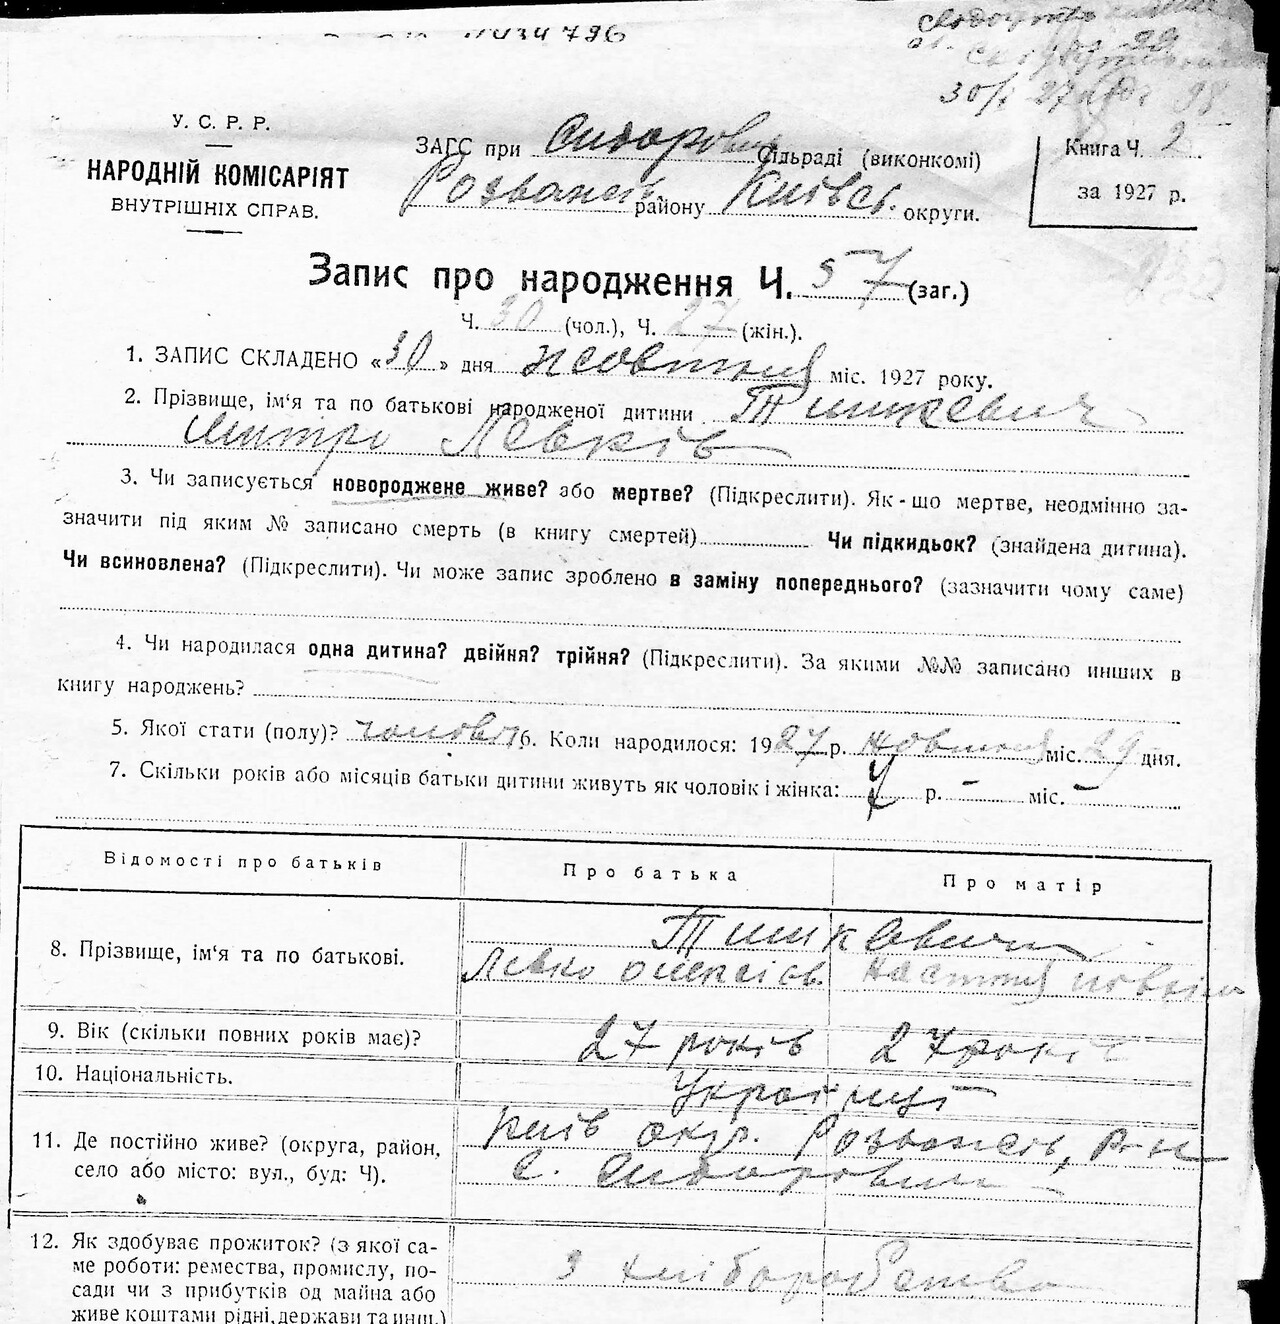 У. С. Р. Р.
НАРОДНІЙ КОМІСАРІЯТ
ВНУТРІШНІХ СПРАВ.
ЗАГС при Сидорович. сільраді (виконкомі)
Розважів. району Київськ. округи.
Книга Ч. 2
за 1927 р.
Запис про народження Ч. 57 (заг.)
Ч. 30 (чол.), Ч. 27 (жін.).
1. ЗАПИС СКЛАДЕНО «30» дня жовтня міс. 1927 року.
2. Прізвище, ім‘я та по батькові народженої дитини Тишкевич
Дмитро Левків
3. Чи записується новороджене живе? або мертве? (Підкреслити). Як-що мертве, неодмінно за-
значити під яким № записано смерть (в книгу смертей) Чи підкидьок? (знайдена дитина).
Чи всиновлена? (Підкреслити). Чи може запис зроблено в заміну попереднього? (зазначити чому саме)
4. Чи народилася одна дитина? двійня? трійня? (Підкреслити). За якими №№ записано инших в
книгу народжень?
5. Якої стати (полу)? чоловіч 6. Коли народилося: 1927 р. жовтня міс. 29 дня.
7. Скільки років або місяців батьки дитини живуть як чоловік і жінка: р. - міс. -
Відомості про батьків Про батька Про матір
8. Прізвище, ім‘я та по батькові. Тишкевичи
Левко Олексієв. Настя
9. Вік (скільки повних років має)? 27 років 27 років
10. Національність. Українці
11. Де постійно живе? (округа, район, Київ окр. Розважів, р-н
село або місто: вул., буд: Ч). С. Сидоровичи
12. Як здобуває прожиток? (з якої са-
ме роботи: ремества, промислу, по- З хліборобства
сади чи з прибутків од майна або
живе коштами рідні, держави та инш.)